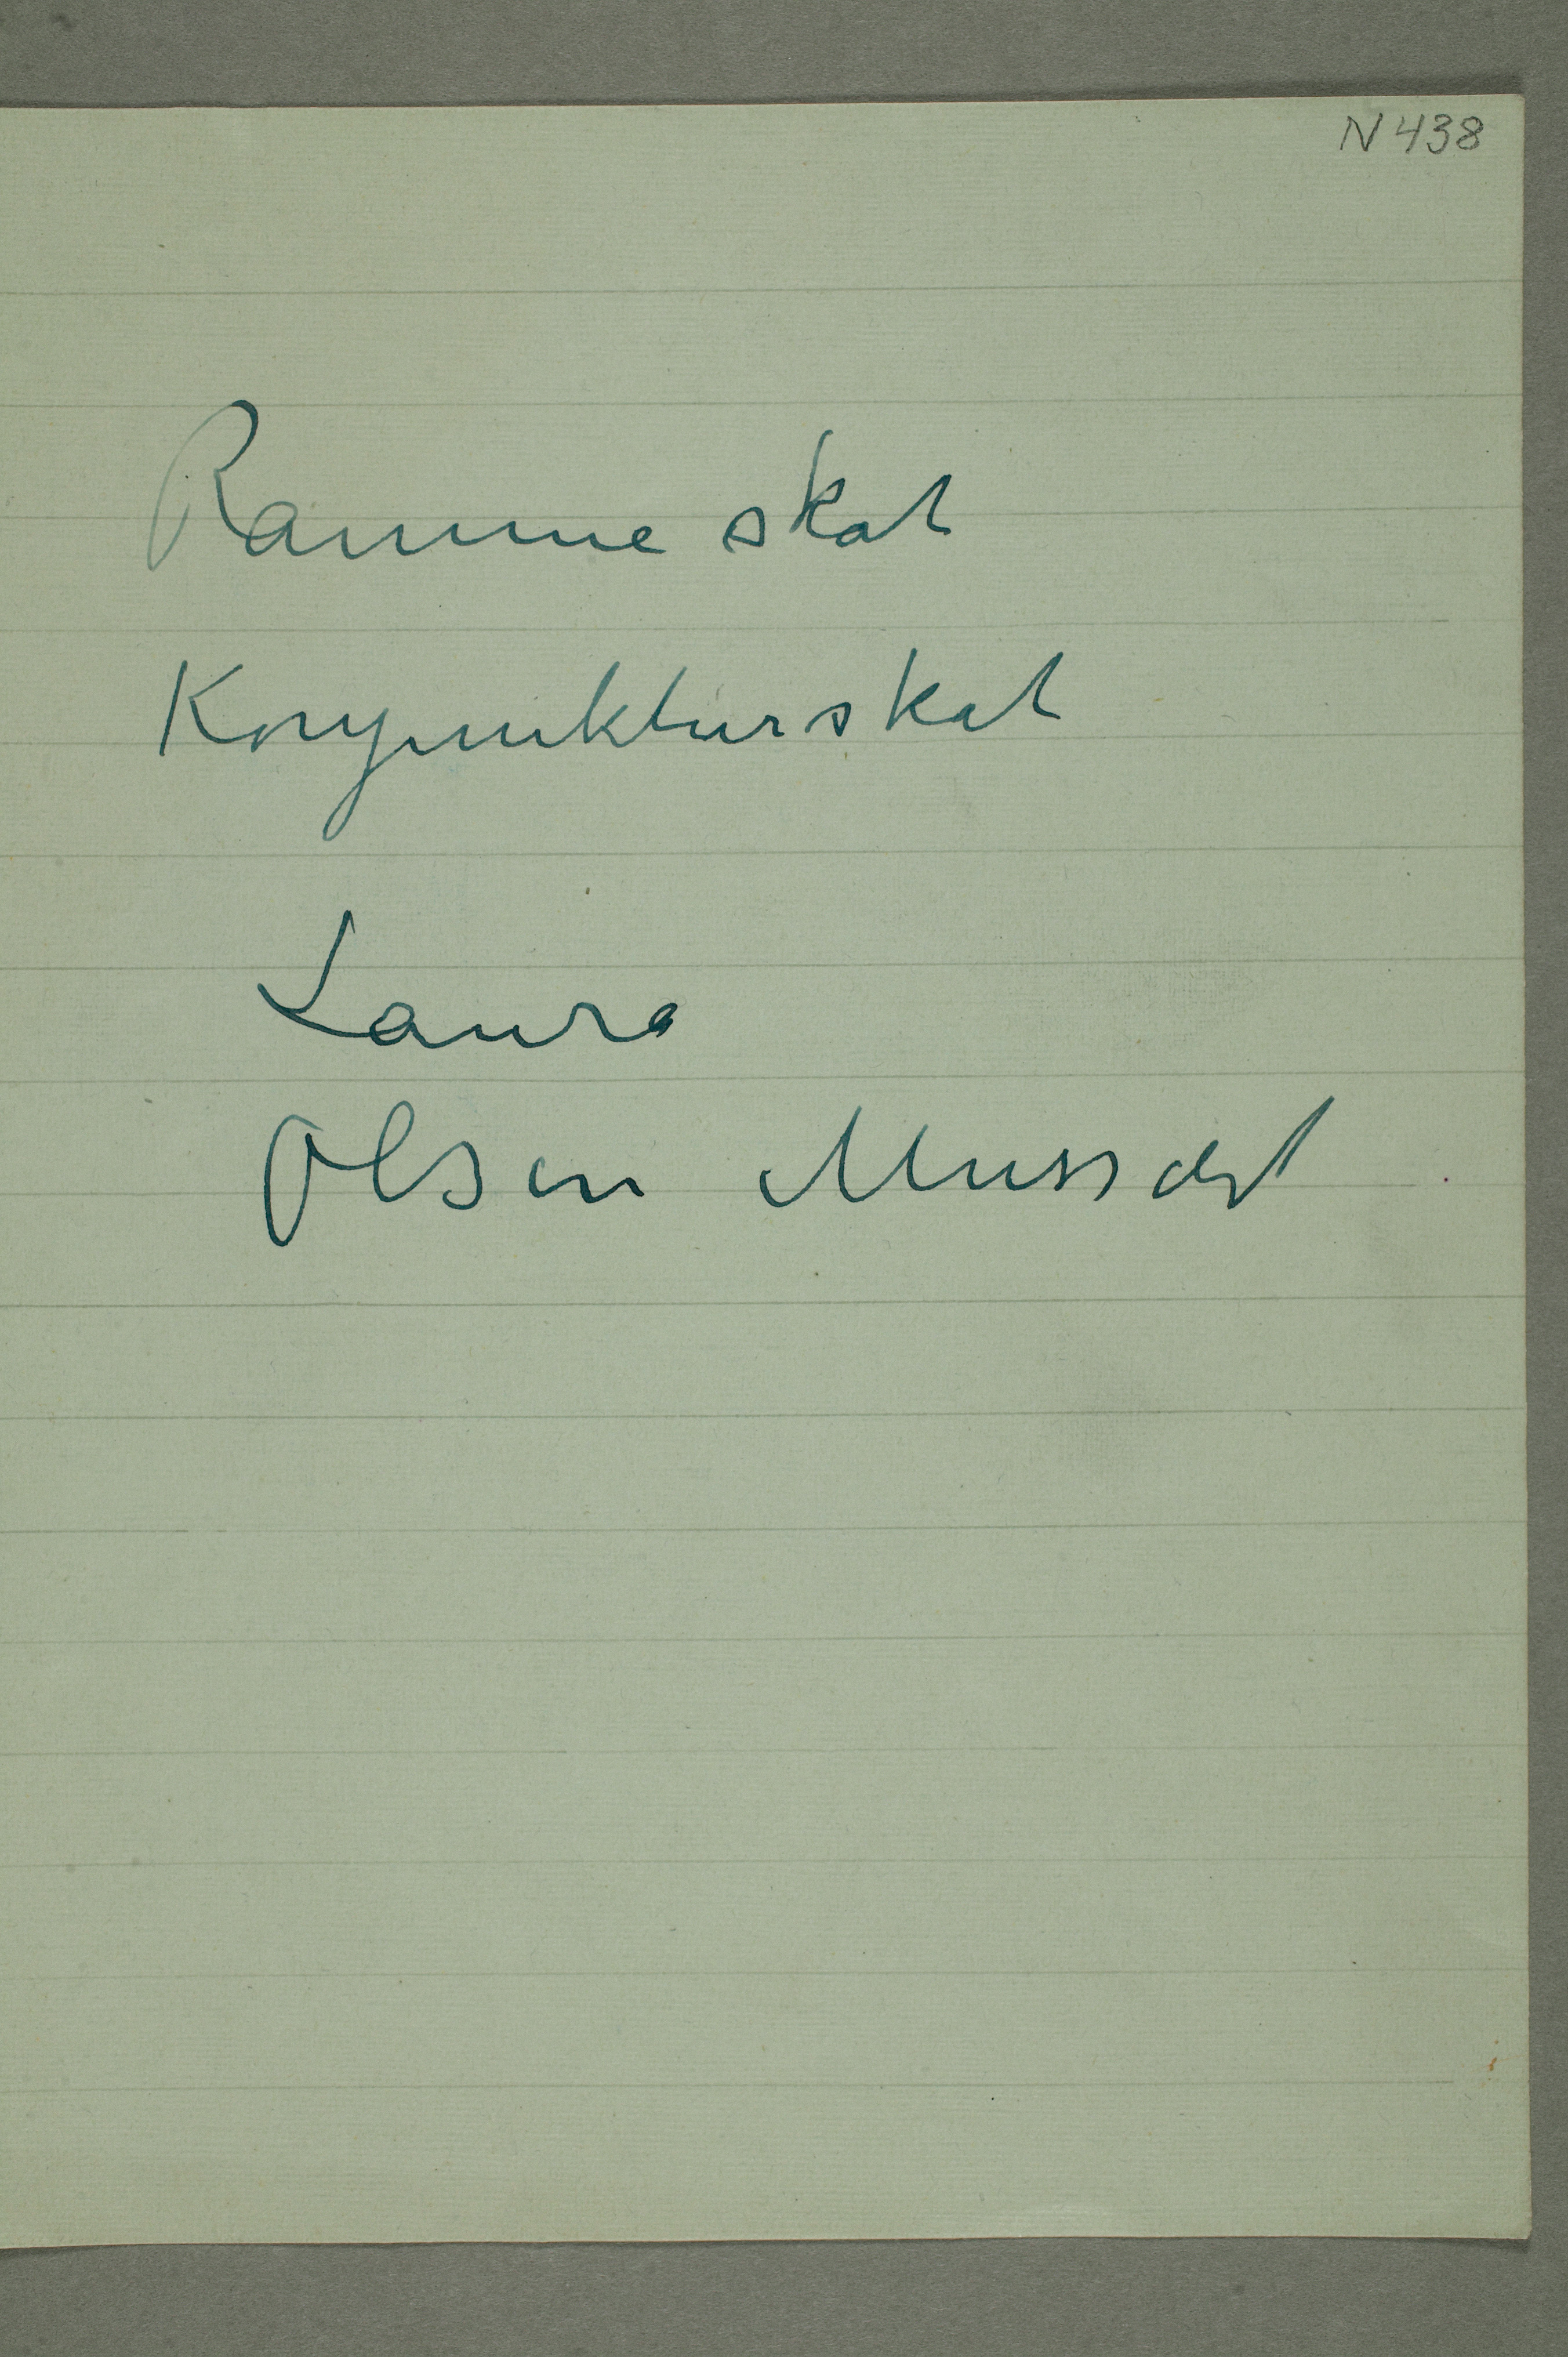 N 438
Ramme skat
Konjunkturskat
Laura
Olsen